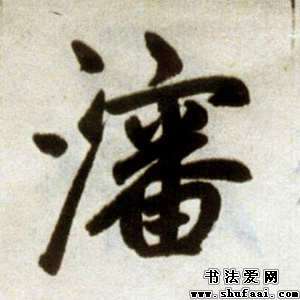 瀋
书法爱网
www.shufaai.com